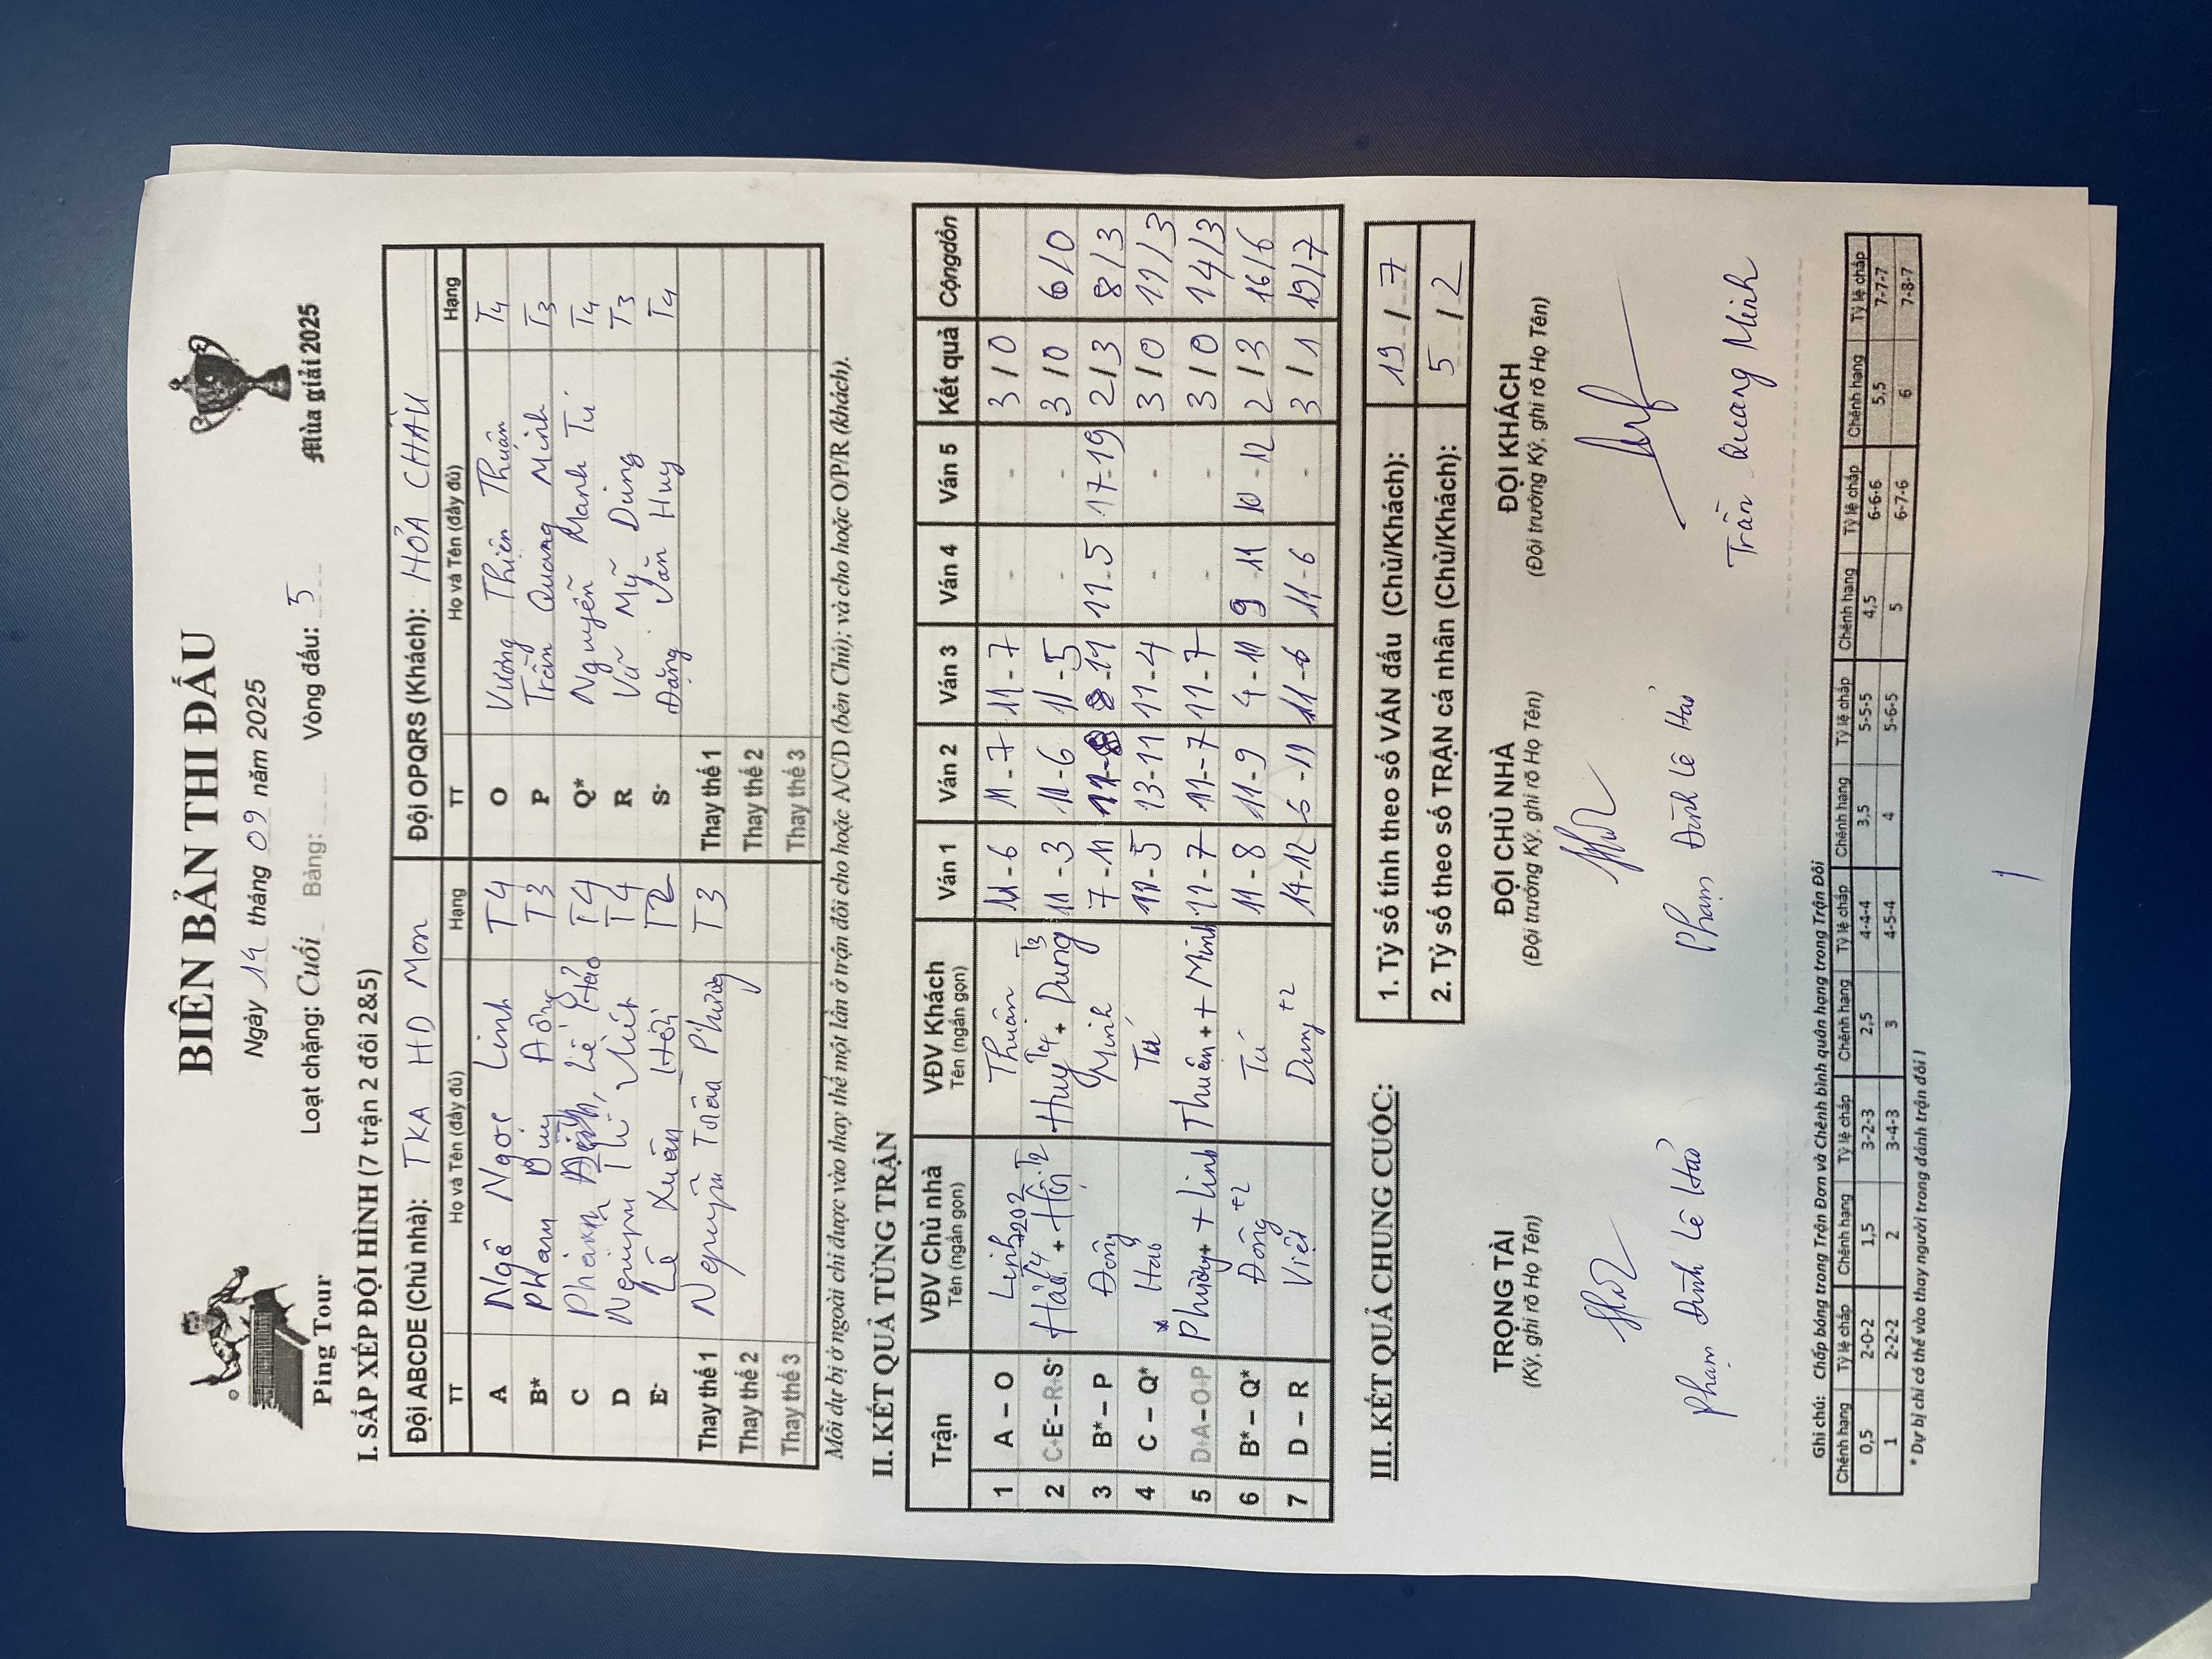 BIÊN BẢN THI ĐẤU
Ngày 14 tháng 09 năm 2025
Ping Tour
Loạt chặng: Cuối Bảng: Vòng đấu: 5
Mùa giải 2025
I. SẮP XẾP ĐỘI HÌNH (7 trận 2 đôi 2&5)
Đội ABCDE (Chủ nhà): TKA HD Mon Đội OPQRS (Khách): HỎA CHÂU
TT Họ và Tên (đầy đủ) Hạng TT Họ và Tên (đầy đủ) Hạng
A Ngô Ngọc Linh T4 O Vương Thiện Thuận T4
B* Phạm Duy Đông T3 P Trần Quang Minh T3
C Lê Hảo T4 Q* Nguyễn Mạnh Tú T4
D T4 R Vũ Mỹ Dũng T3
E- Lê Xuân Hội T2 S- Đặng Văn Huy T4
Thay thế 1 Nguyễn Toàn Phương T3 Thay thế 1
Thay thế 2 Thay thế 2
Thay thế 3 Thay thế 3
Mỗi dự bị ở ngoài chỉ được vào thay thế một lần ở trận đôi cho hoặc A/C/D (bên Chủ); và cho hoặc O/P/R (khách).
II. KẾT QUẢ TỪNG TRẬN
Trận VĐV Chủ nhà VĐV Khách Ván 1 Ván 2 Ván 3 Ván 4 Ván 5 Kết quả Cộng dồn
Tên (ngắn gọn) Tên (ngắn gọn)
1 A – O Linh Thuận 11-6 11-7 11-7 - - 3/0
2 C+E-–R+S- Hảo T4 + Hội T2 Huy T4 + Dung T3 11-3 11-6 11-5 - - 3/0 6/0
3 B* – P Đông Minh 7-11 11-8 8-11 11-5 17-19 2/3 8/3
4 C – Q* * Hảo Tú 11-5 13-11 11-4 - - 3/0 11/3
5 D+A–O+P Phương + Linh Thuận + Minh 11-7 11-7 11-7 - - 3/0 14/3
6 B* – Q* Đông +2 Tú 11-8 11-9 4-11 9-11 10-12 2/3 16/6
7 D – R Việt Dung +2 14-12 6-11 11-6 11-6 - 3/1 19/7
III. KẾT QUẢ CHUNG CUỘC:
1. Tỷ số tính theo số VÁN đấu (Chủ/Khách): 19 / 7
2. Tỷ số theo số TRẬN cá nhân (Chủ/Khách): 5 / 2
TRỌNG TÀI ĐỘI CHỦ NHÀ ĐỘI KHÁCH
(Ký, ghi rõ Họ Tên) (Đội trưởng Ký, ghi rõ Họ Tên) (Đội trưởng Ký, ghi rõ Họ Tên)
Phạm Đình Lê Hảo Phạm Đình Lê Hảo Trần Quang Minh
Ghi chú: Chấp bóng trong Trận Đơn và Chênh bình quân hạng trong Trận Đôi
Chênh hạng Tỷ lệ chấp Chênh hạng Tỷ lệ chấp Chênh hạng Tỷ lệ chấp Chênh hạng Tỷ lệ chấp Chênh hạng Tỷ lệ chấp Chênh hạng Tỷ lệ chấp
0,5 2-0-2 1,5 3-2-3 2,5 4-4-4 3,5 5-5-5 4,5 6-6-6 5,5 7-7-7
1 2-2-2 2 3-4-3 3 4-5-4 4 5-6-5 5 6-7-6 6 7-8-7
* Dự bị chỉ có thể vào thay người trong đánh trận đôi !
1